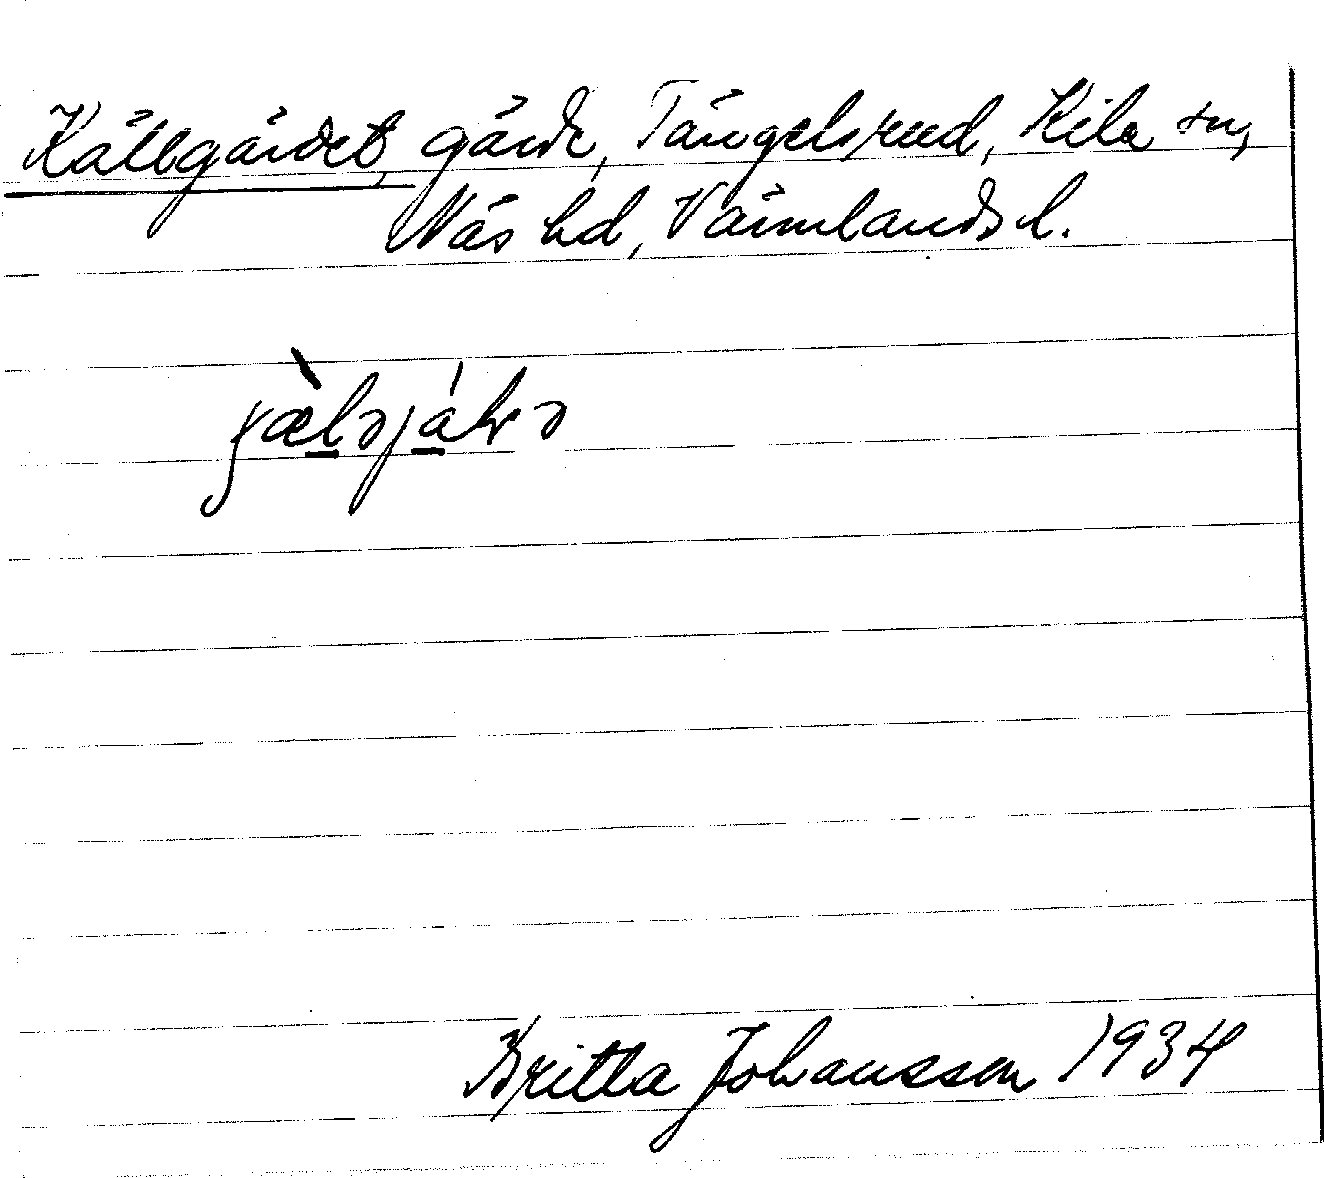 Källgärdet, gärde, Tängelsrud, Kila sn,
Näs hd, Värmlands l.
Britta Johansson 1934